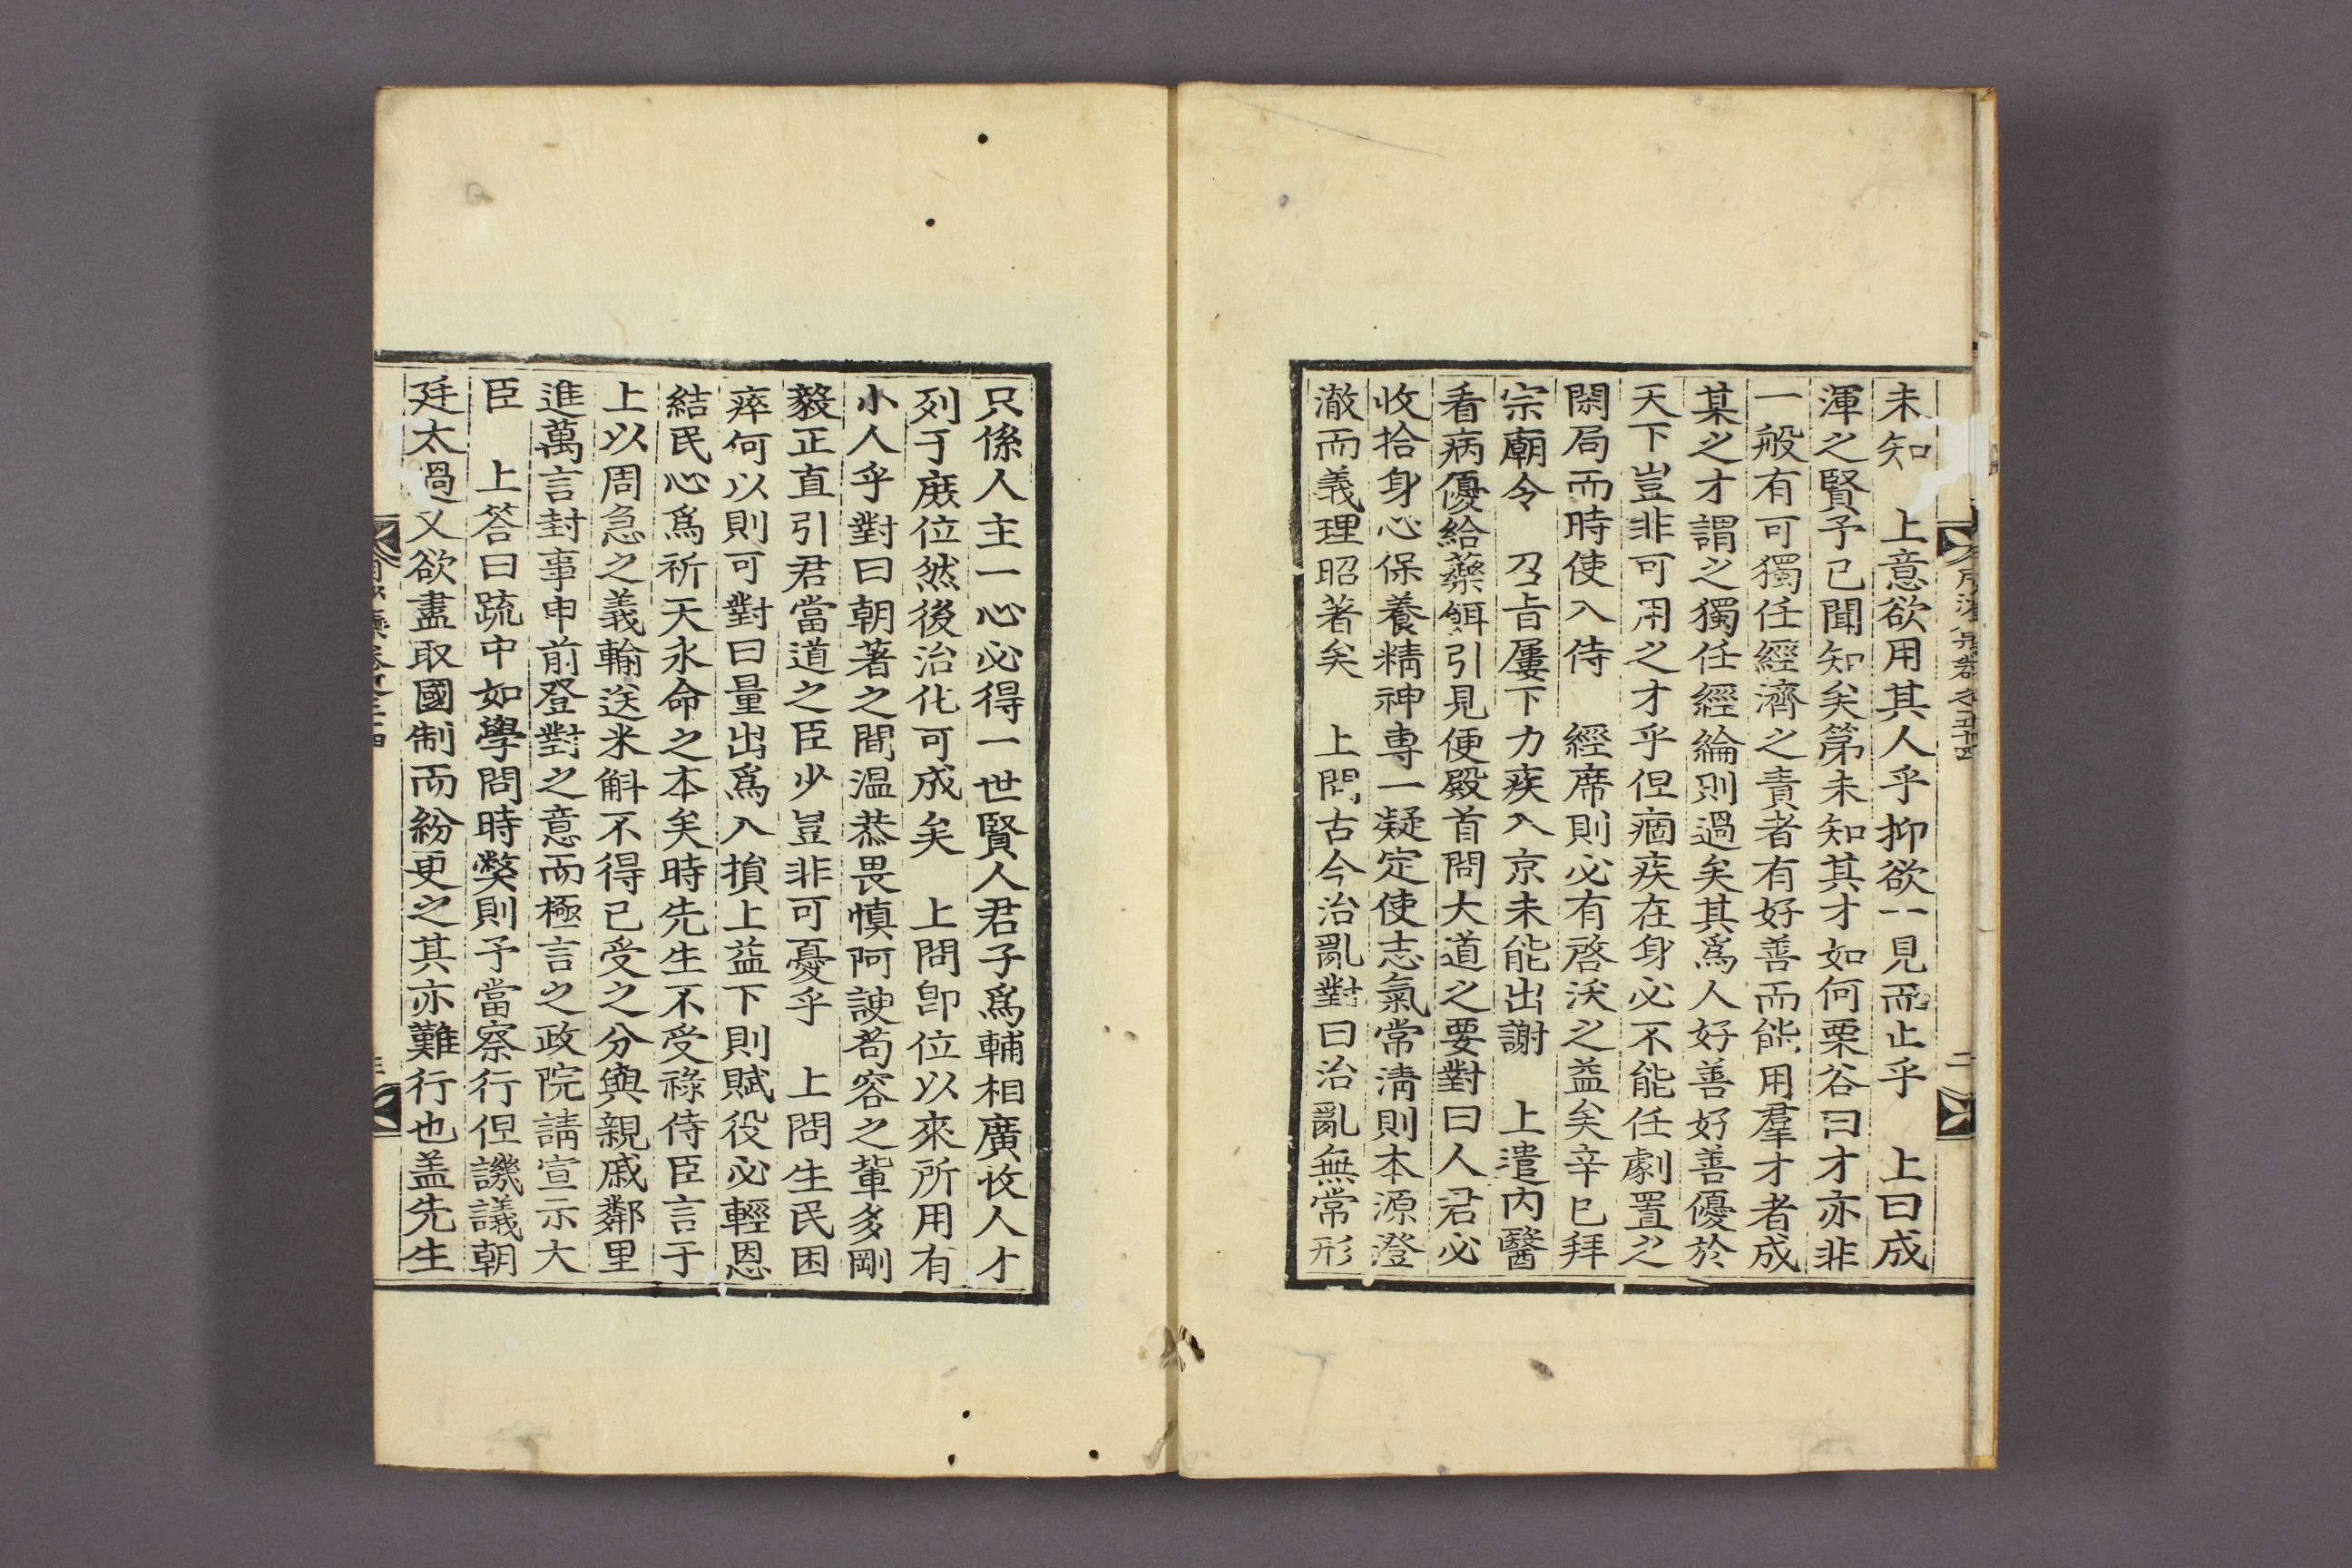 未知　上意欲用其人乎抑欲一見而止乎　上曰成
渾之賢予已聞知矣第未知其才如何栗谷曰才亦非
一般有可獨任經濟之責者有好善而能用羣才者成
某之才謂之獨任經綸則過矣其爲人好善好善優於
天下豈非可用之才乎但痼疾在身必不能任劇置之
閑局而時使入侍　經席則必有啓沃之益矣辛巳拜
宗廟令　召旨屢下力疾入京未能出謝　上遣內醫
看病優給藥餌引見便殿首問大道之要對曰人君必
收拾身心保養精神專一凝定使志氣常淸則本源澄
澈而義理昭著矣　上問古今治亂對曰治亂無常形
只係人主一心必得一世賢人君子爲輔相廣收人才
列于庶位然後治化可成矣　上問卽位以來所用有
小人乎對曰朝著之間温恭畏愼阿諛苟容之輩多剛
毅正直引君當道之臣少豈非可憂乎　上問生民困
瘁何以則可對曰量出爲入損上益下則賦役必輕恩
結民心爲祈天永命之本矣時先生不受祿侍臣言于
上以周急之義輸送米斛不得已受之分與親戚鄰里
進萬言封事申前登對之意而極言之政院請宣示大
臣　上答曰疏中如學問時弊則予當察行但譏議朝
廷太過又欲盡取國制而紛更之其亦難行也盖先生